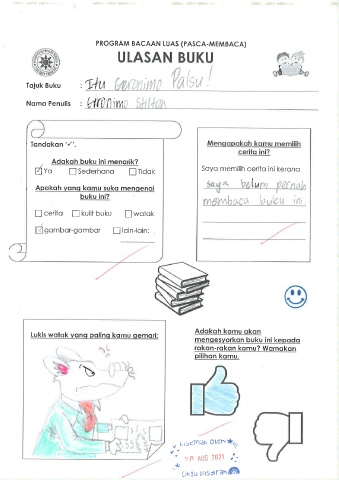 PROGRAM BACAAN LUAS (PASCA-MEMBACA)
ULASAN BUKU
Tajuk Buku : Itu Geronimo Palsu!
Nama Penulis : Geronimo Stilton
Tandakan '✓'.
Adakah buku ini menarik?
☑ Ya ☐ Sederhana ☐ Tidak
Apakah yang kamu suka mengenai
buku ini?
☐ cerita ☐ kulit buku ☐ watak
☑ gambar-gambar ☐ lain-lain:
Mengapakah kamu memilih
cerita ini?
Saya memilih cerita ini kerana
saya belum pernah
membaca buku ini.
Lukis watak yang paling kamu gemari:
Adakah kamu akan
mengesyorkan buku ini kepada
rakan-rakan kamu? Warnakan
pilihan kamu.
Disemak oleh
20 AUG 2021